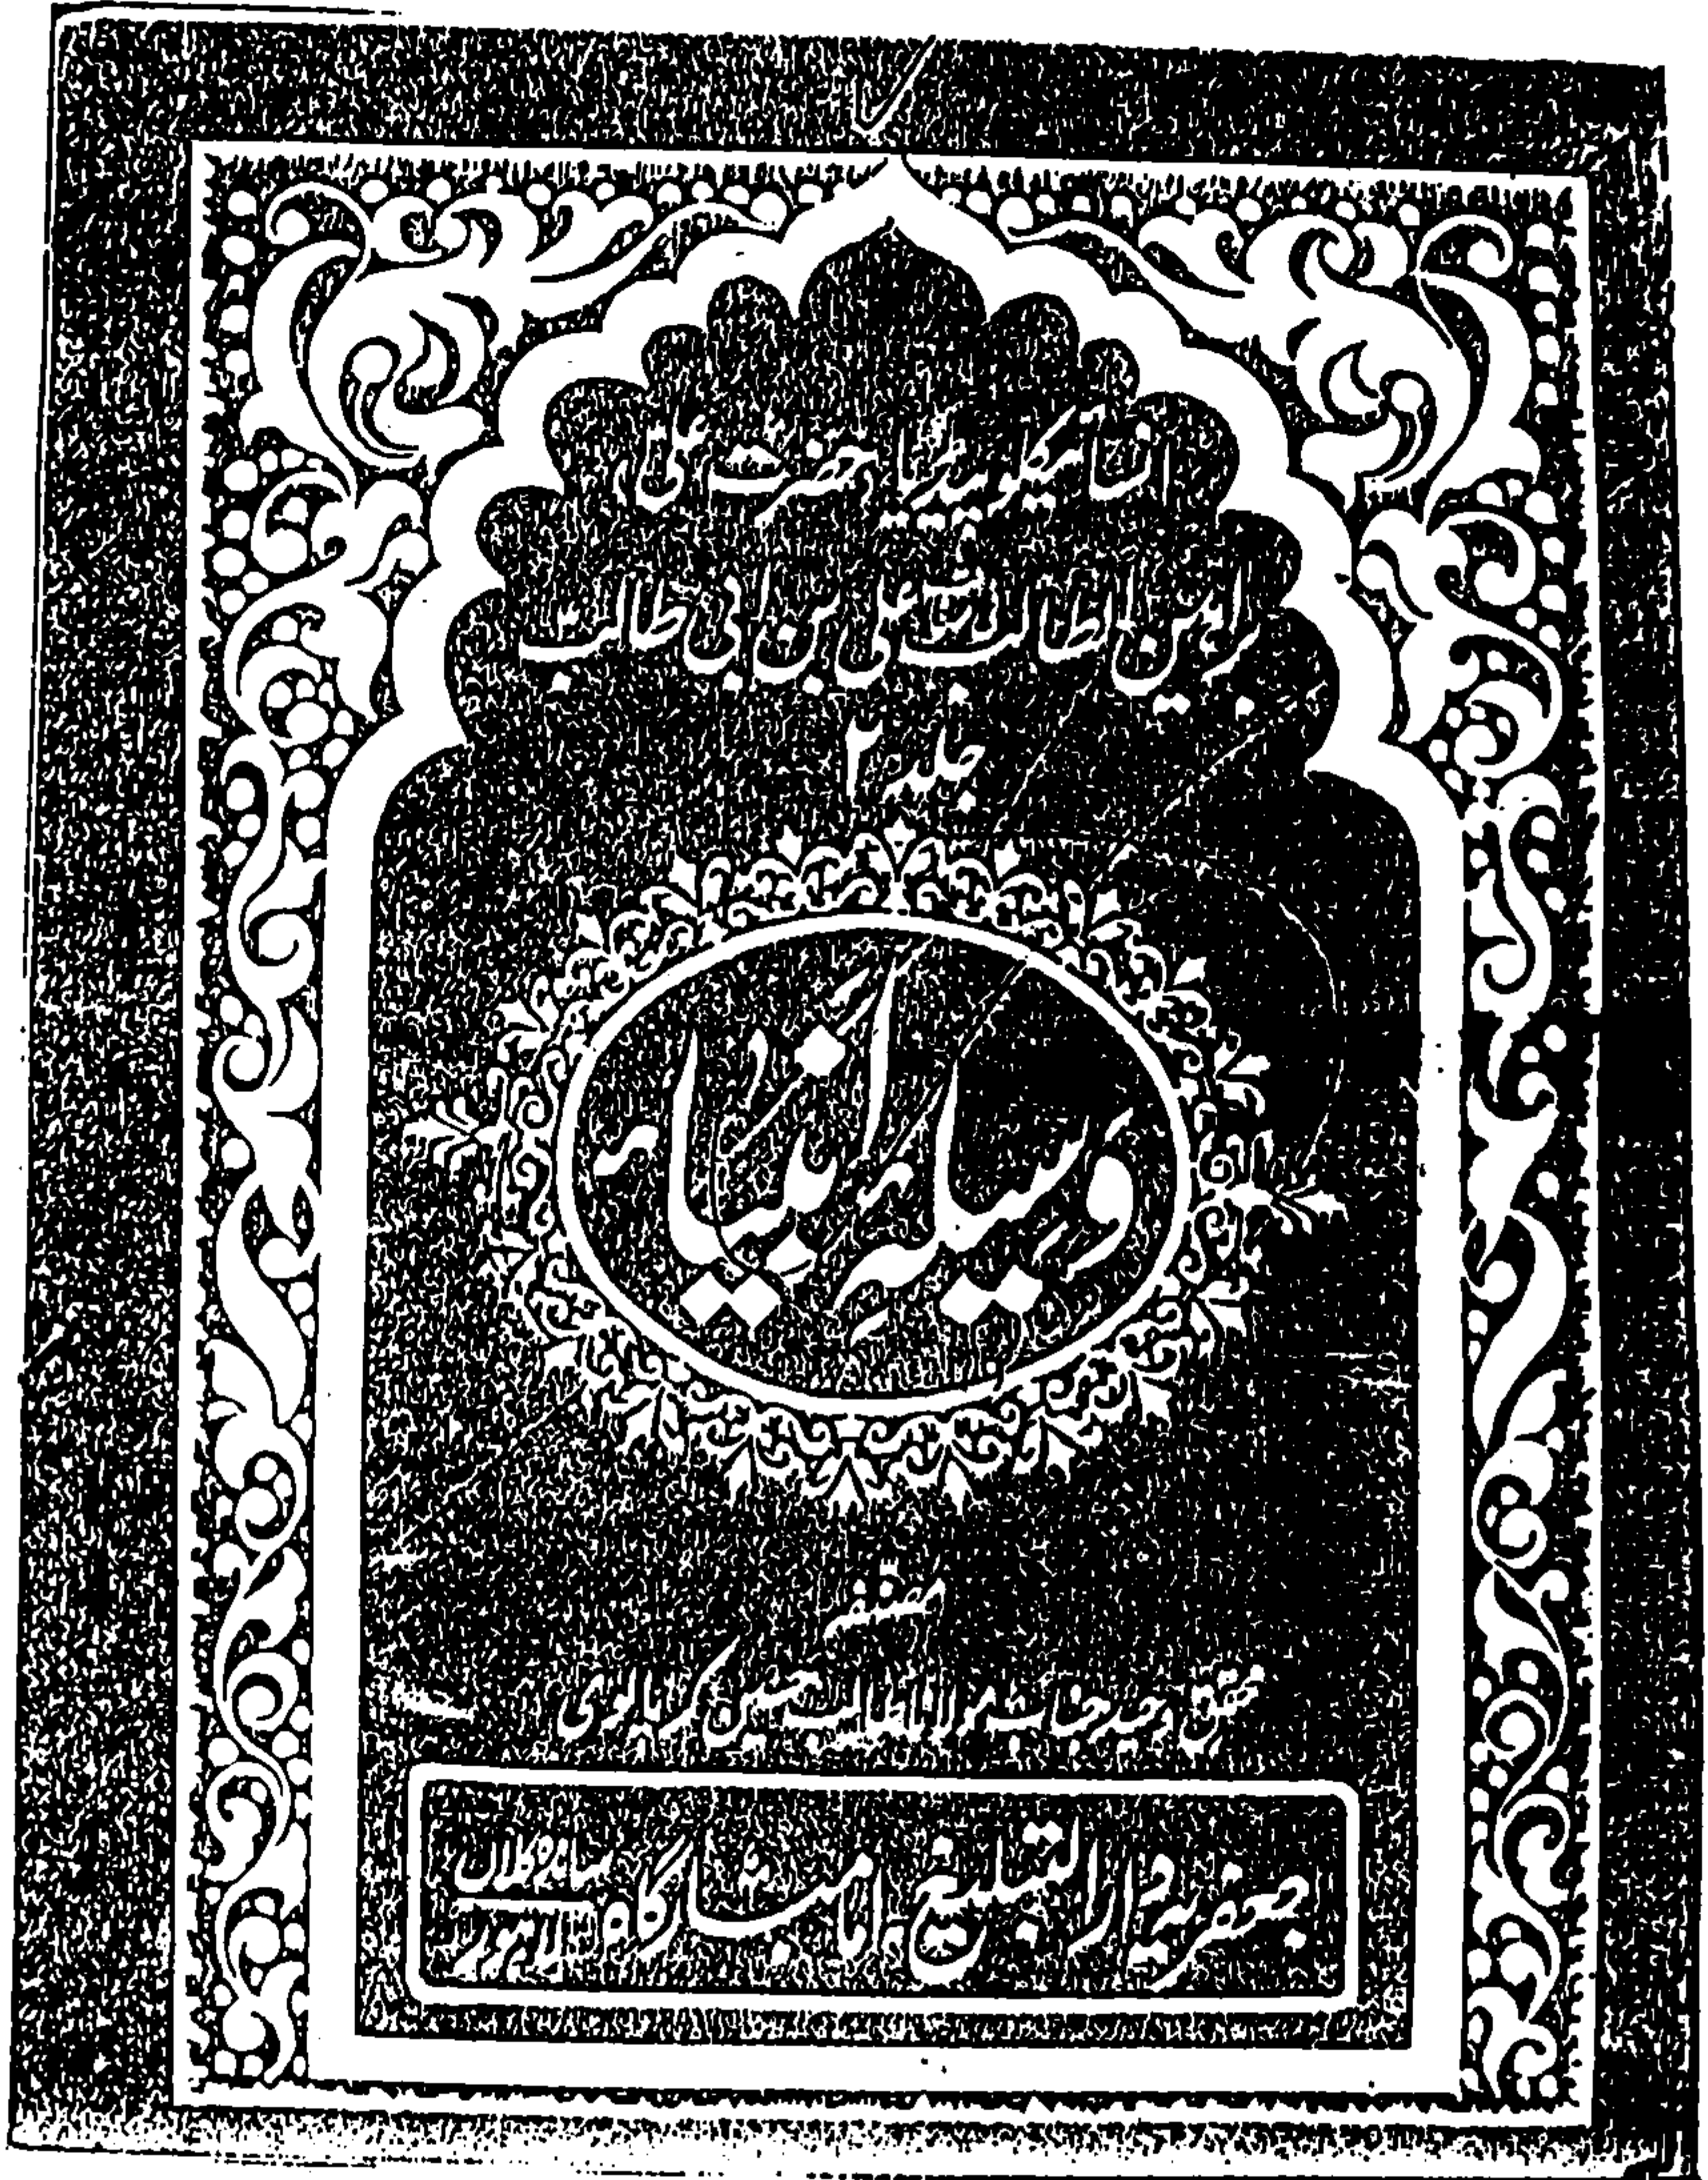 انسائیکلوپیڈیا حضرت علیؑ
امیرالمومنین علی بن ابی طالب
جلد ۲
وسیلہ انبیاء
مصنف
محقق وحید جناب مولانا طالب حسین کرپالوی
جعفریہ دارالتبلیغ امامت گاہ
ساندہ کلاں
لاہور